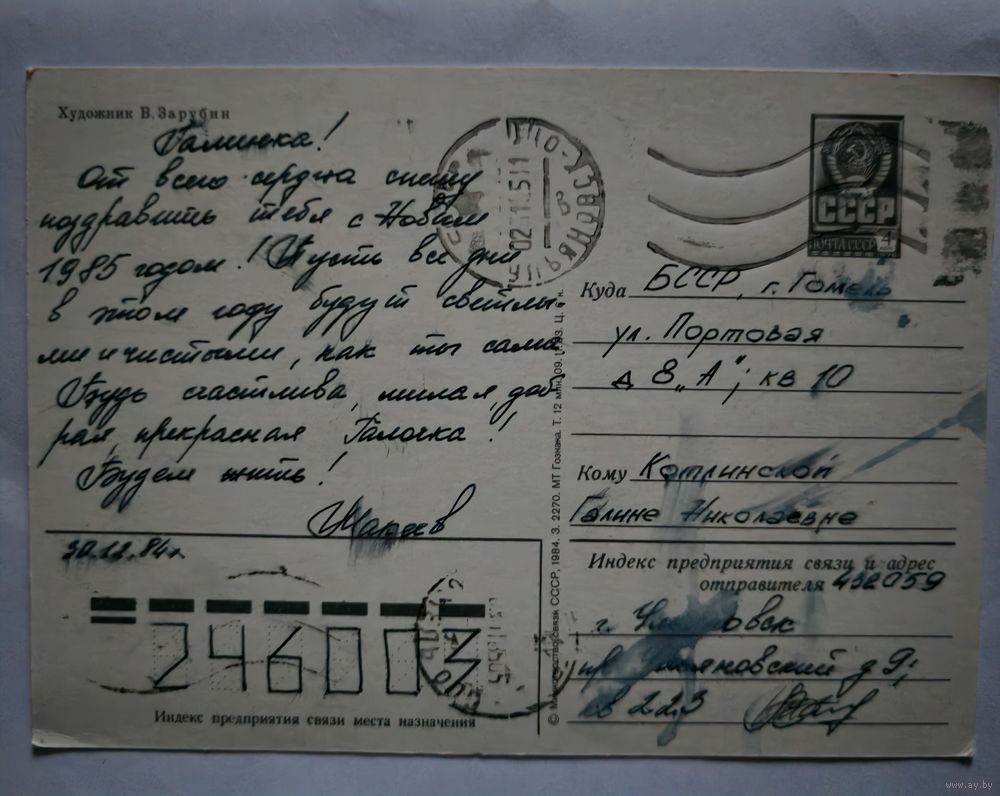 Художник В. Зарубин
Галинка!
От всего сердца спешу
поздравить тебя с Новым
1985 годом! Пусть все дни
в этом году будут светлы-
ми и чистыми, как ты сама
Будь счастлива, милая, доб-
рая, прекрасная Галочка!
Будем жить!
30.12.84 г.
246003
Индекс предприятия связи места назначения
© Министерство связи СССР, 1984. З. 2270. МТ Гознака. Т. 12 млн. 09.11.83. Ц.
СССР
ПОЧТА СССР 4
Куда БССР, г. Гомель
ул. Портовая
д 8 „А“; кв 10
Кому Котлинской
Галине Николаевне
Индекс предприятия связи и адрес
отправителя 432059
г. Ульяновск
пр. Ульяновский д 9,
кв 223
www.ay.by